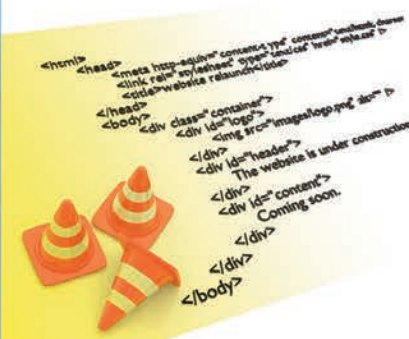 <html>
<head>
<meta http-equiv="content-type" content="text/html; charset
<link rel="stylesheet" type="text/css" href="style.css" />
<title>website relaunch</title>
</head>
<body>
<div class="container">
<div id="logo">
<img src="images/logo.png" alt="" />
</div>
<div id="header">
The website is under construction
</div>
<div id="content">
Coming soon.
</div>
</div>
</body>